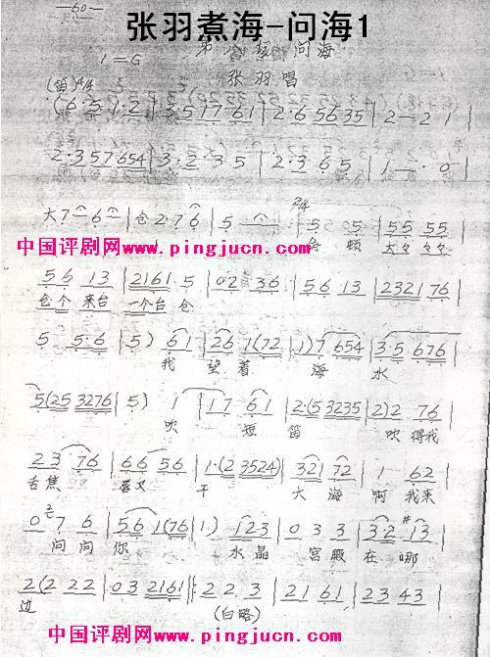 -60-
张羽煮海-问海1
问海
1=G
张羽唱
(笛)4/4
(6·5 1·2 | 3·5 1 7 6 1 | 2·6 5 6 3 5 | 2 — 2 1 |
2·3 5 7 6 5 4 | 3·2 3 5 | 2·3 6 5 | 1 — · 0 |
大 7 — 6 — | 仓 2 7 6 | 5 — | 2/4 5 5 | 5 5 5 5 |
仓 顿 大大
中国评剧网www.pingjucn.com
5 6 1 3 | 2 1 6 1 5 | 0 2 3 6 | 5 6 1 3 | 2 3 2 1 7 6 |
仓个 来台 一个台 仓
5 5·6 | 5) 6 1 | 2 6 1(7 2 | 1) 7 6 5 4 | 3·5 6 7 6 |
我 望着 海 水
5(2 5 3 2 7 6 | 5) 1 | 1 7 6 1 | 2·(5 3 2 3 5 | 2) 2 7 6 |
吹 短 笛 吹得我
2 3 7 6 | 6 6 5 6 | 1·(2 3 5 2 4) | 3 2 1 7 2 | 1 6 2 |
舌焦 唇又 干 大海 啊 我来
0 7 6 | 5 6 1(7 6 | 1) 1 2 3 | 0 3 3 | 3·2 #1 3 |
问问 你 水晶 宫殿 在哪
2(2 2 2 | 0 3 2 1 6 1 ‖: 2 2 3 | 2 1 6 1 | 2 3 4 3 |
边 (白略)
中国评剧网www.pingjucn.com